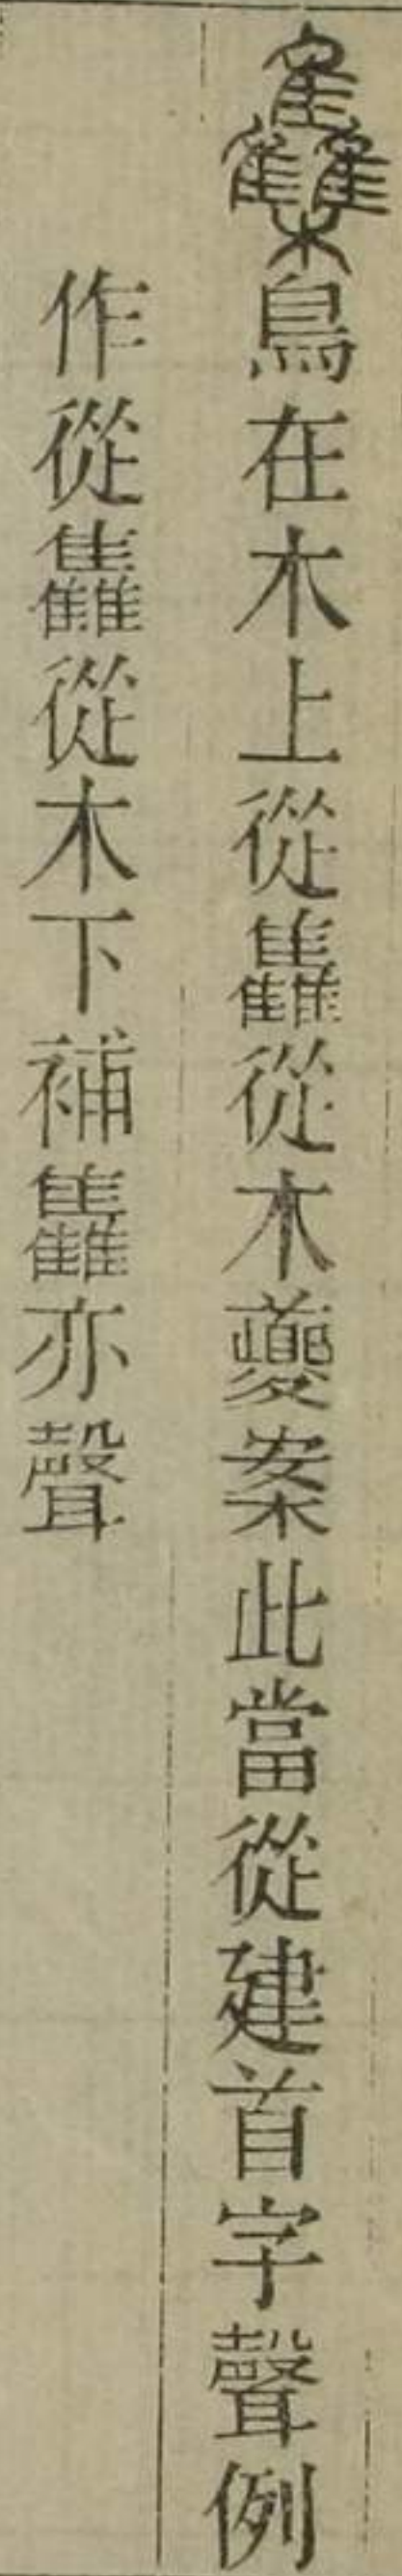 雧鳥在木上從雥從木夔案此當從建首字聲例
作從雥從木下補雥亦聲